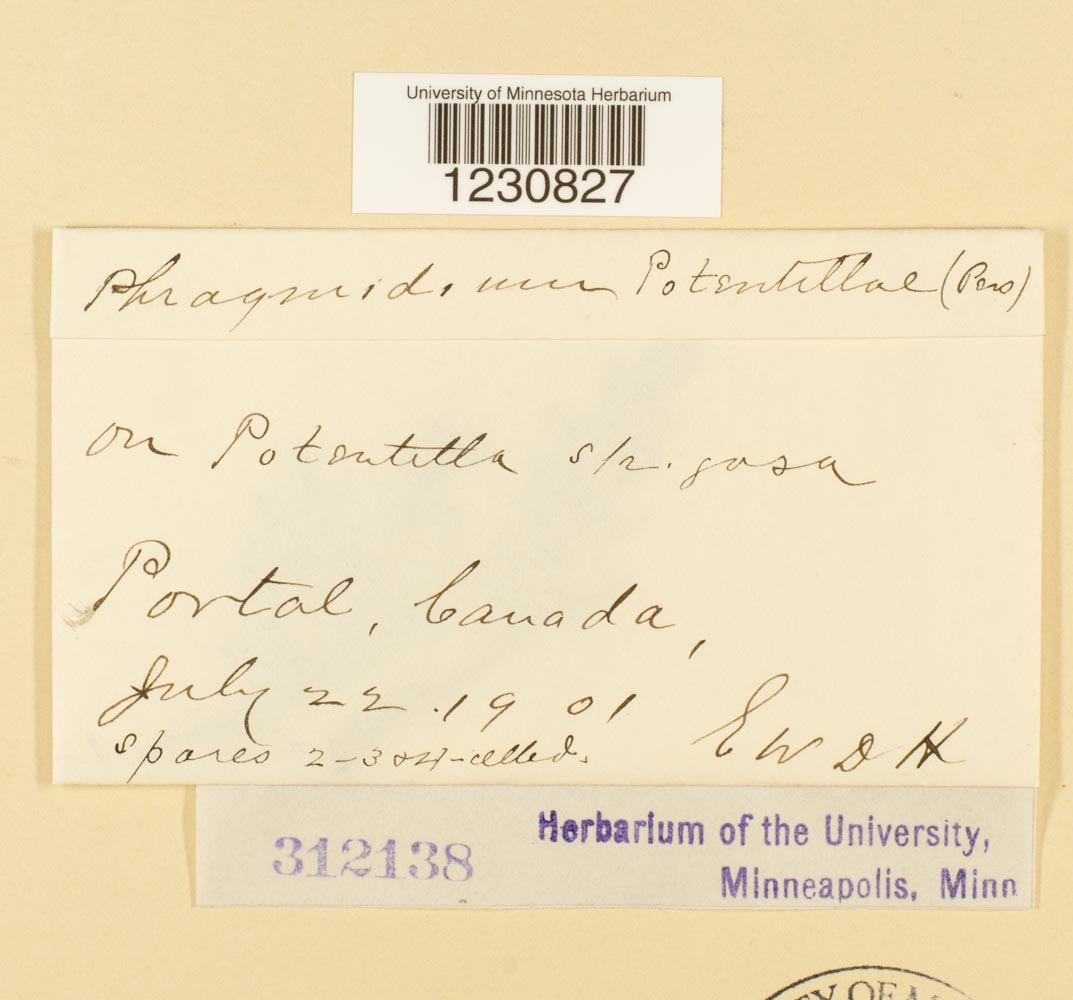 University of Minnesota Herbarium
1230827
Phragmidium Potentillae (Pers)
on Potentilla strigosa
Portal, Canada,
July 22. 1901
E W D H
spores 2-3 or 4-celled.
312138
Herbarium of the University,
Minneapolis, Minn